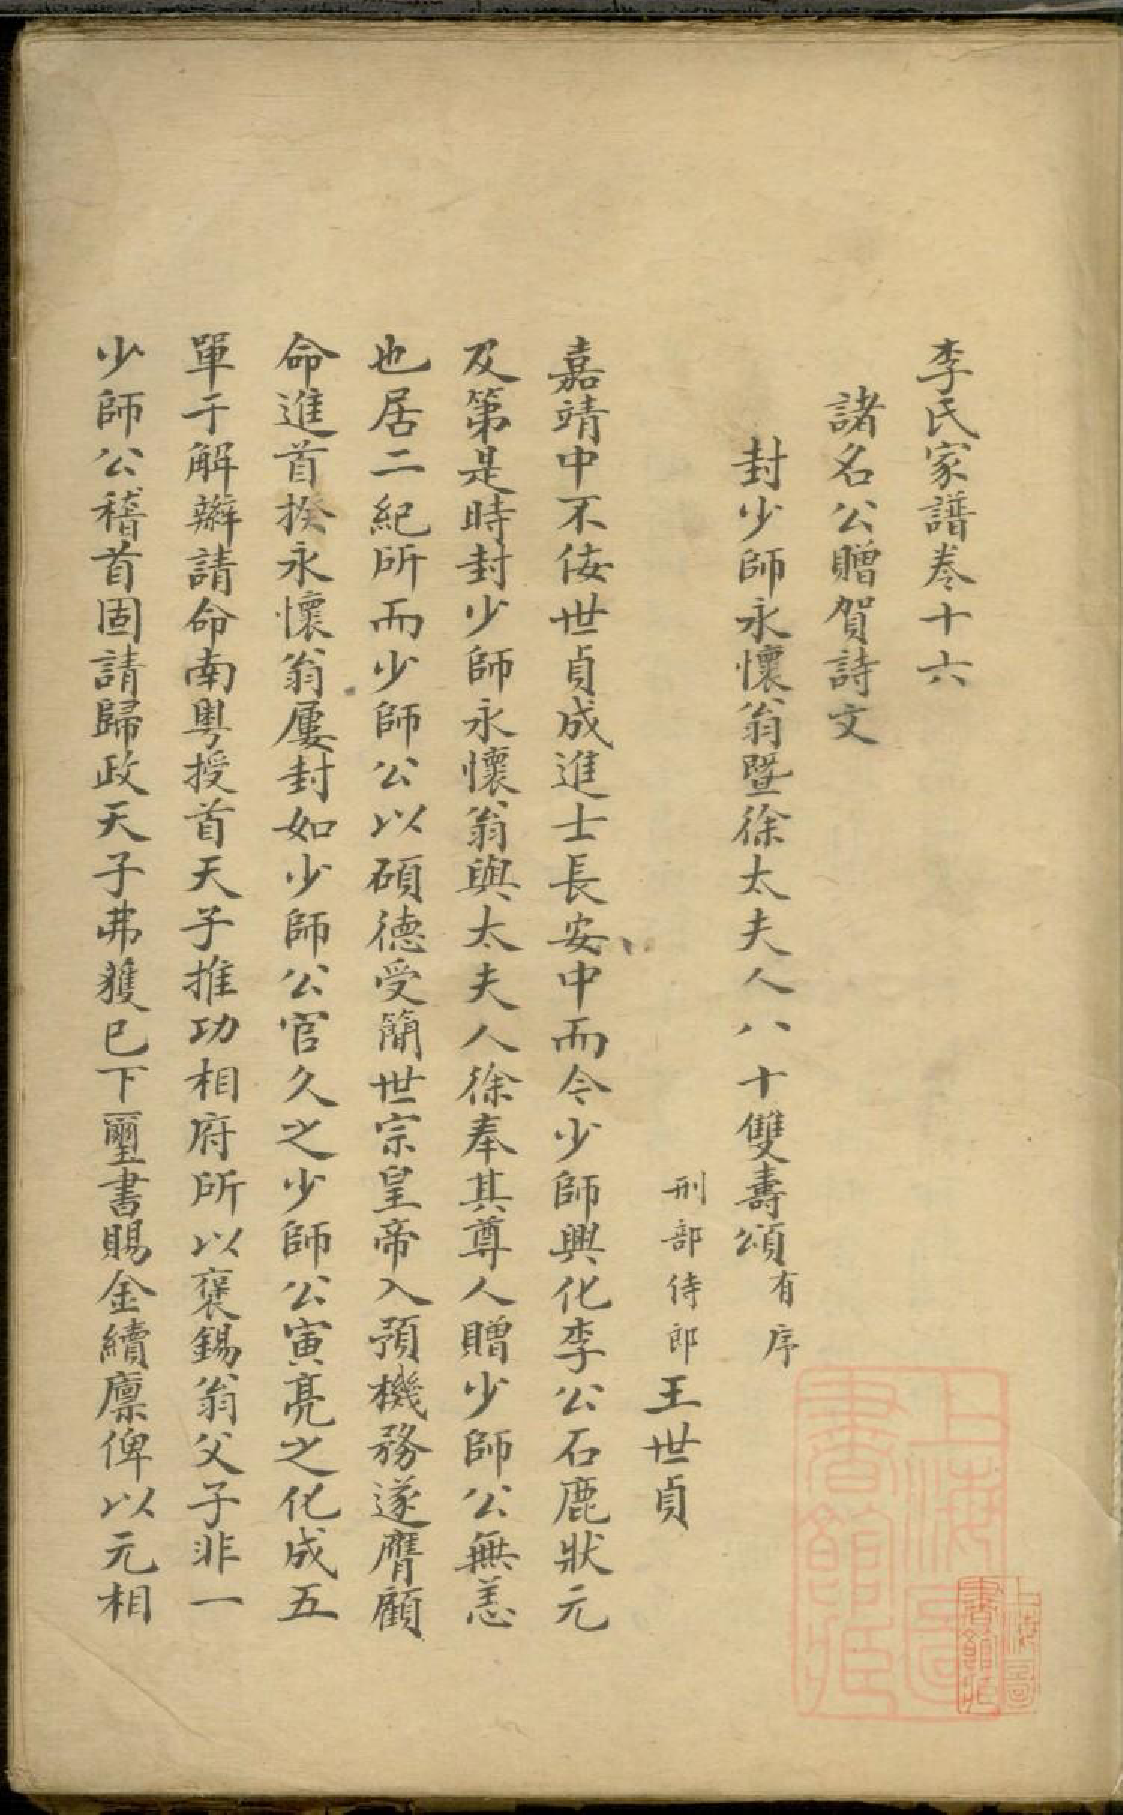 李氏家譜卷十六
諸名公贈賀詩文
封少師永懷翁暨徐太夫人八十雙壽頌有序
刑部侍郎王世貞
嘉靖中不佞世貞成進士長安中而今少師興化李公石鹿狀元
及第是時封少師永懷翁與太夫人徐奉其尊人贈少師公無恙
也居二紀所而少師公以碩德受簡世宗皇帝入預機務遂膺顧
命進首揆永懷翁屢封如少師公官久之少師公寅亮之化成五
單于解辮請命南粵授首天子推功相府所以褒錫翁父子非一
少師公稽首固請歸政天子弗獲已下璽書賜金續廩俾以元相
上海圖書館藏
上海圖書館藏